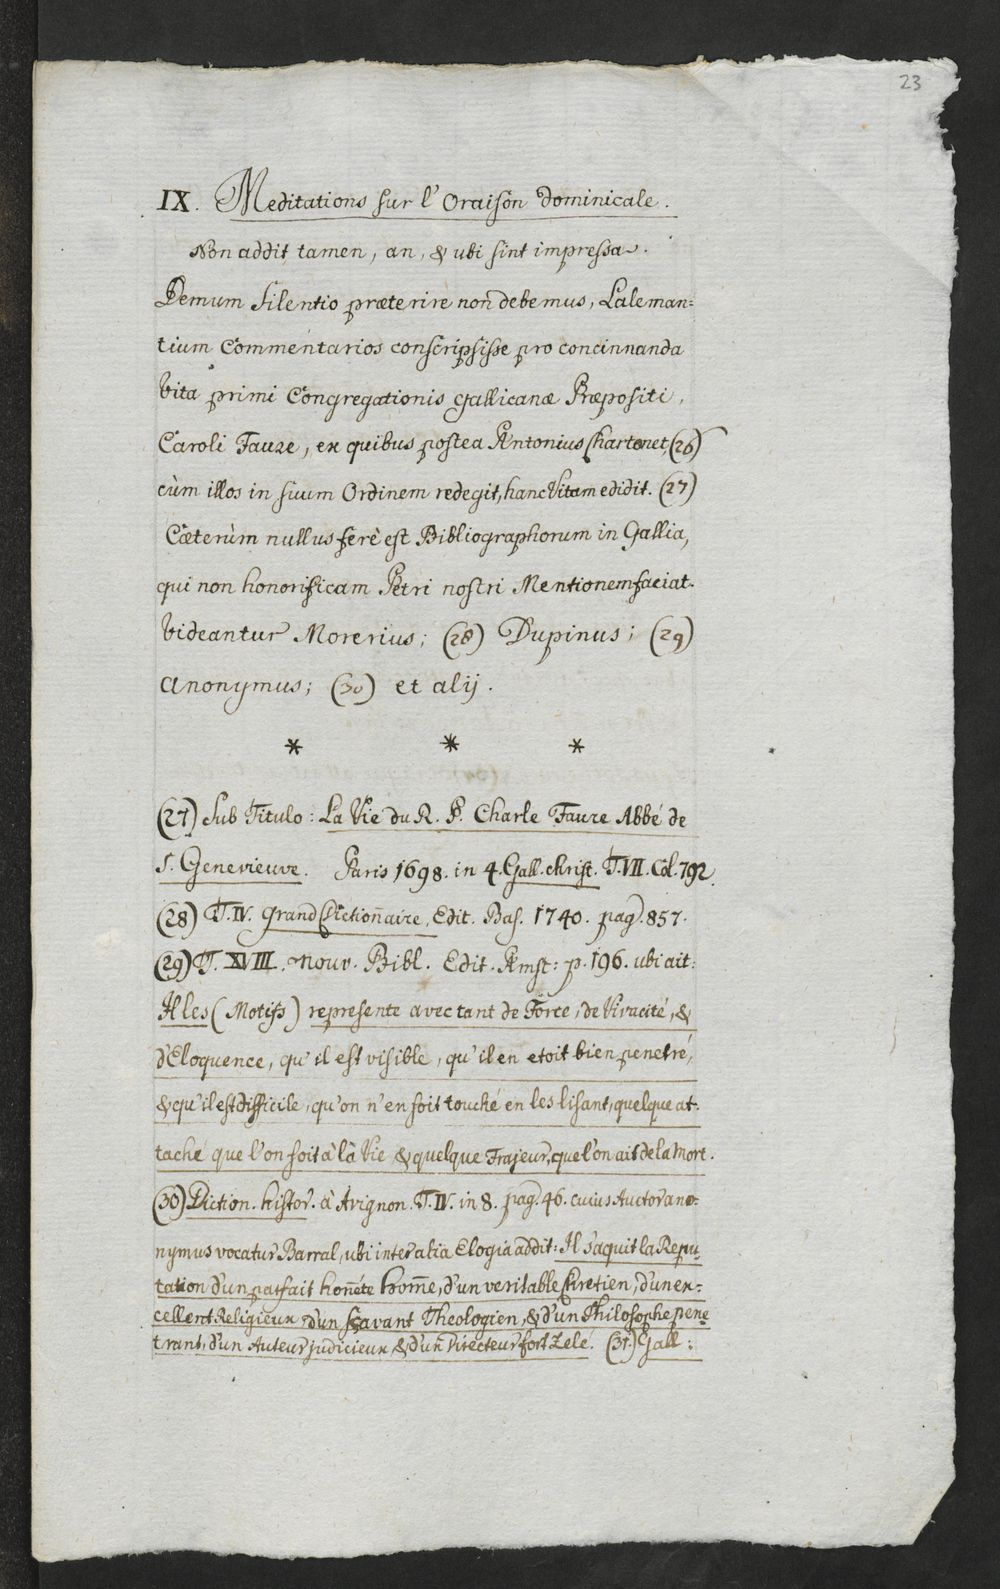 23
IX. Meditations sur l'Oraison Dominicale.
Non addit tamen, an, & ubi sint impressa.
Demum silentio præterire non debemus, Laleman=
tium Commentarios conscripsisse pro concinnanda
Vita primi Congregationis Gallicanæ Præpositi,
Caroli Faure, ex quibus postea Antonius Chartonet, (26)
cùm illos in suum Ordinem redegit, hanc Vitam edidit. (27)
Cæterùm nullus ferè est Bibliographorum in Gallia,
qui non honorificam Petri nostri Mentionem faciat.
Videantur Morerius; (28) Dupinus; (29)
Anonymus; (30) et alij.
* * *
(27) Sub Titulo: La Vie du R. P. Charle Faure Abbé de
S. Genevieuve. Paris 1698. in 4. Gall. christ. T. VII. Col. 792.
(28) T. IV. Grand Dictionnaire, Edit. Bas. 1740. pag. 857.
(29) T. XVIII. Nouv. Bibl. Edit. Amst: p. 196. ubi ait:
Il les (Motifs) represente avec tant de Force, de Vivacité, &
d'Eloquence, qu'il est visible, qu'il en etoit bien penetré,
& qu'il est difficile, qu'on n'en soit touché en les lisant, quelque at-
taché que l'on soit à là Vie & quelque Frajeur, que l'on ait de la Mort.
(30) Diction. histor. à Avignon. T. IV. in 8. pag. 46. cuius Auctor ano-
nymus vocatur Barral, ubi inter alia Elogia addit: Il s'aquit la Repu
tation d'un parfait honnéte homme, d'un veritable Chretien, d'un ex-
cellent Religieux d'un sçavant Theologien, & d'un Philosophe pene
trant, d'un Auteur judicieux & d'un Directeur fort Zelé. (31.) Gall: